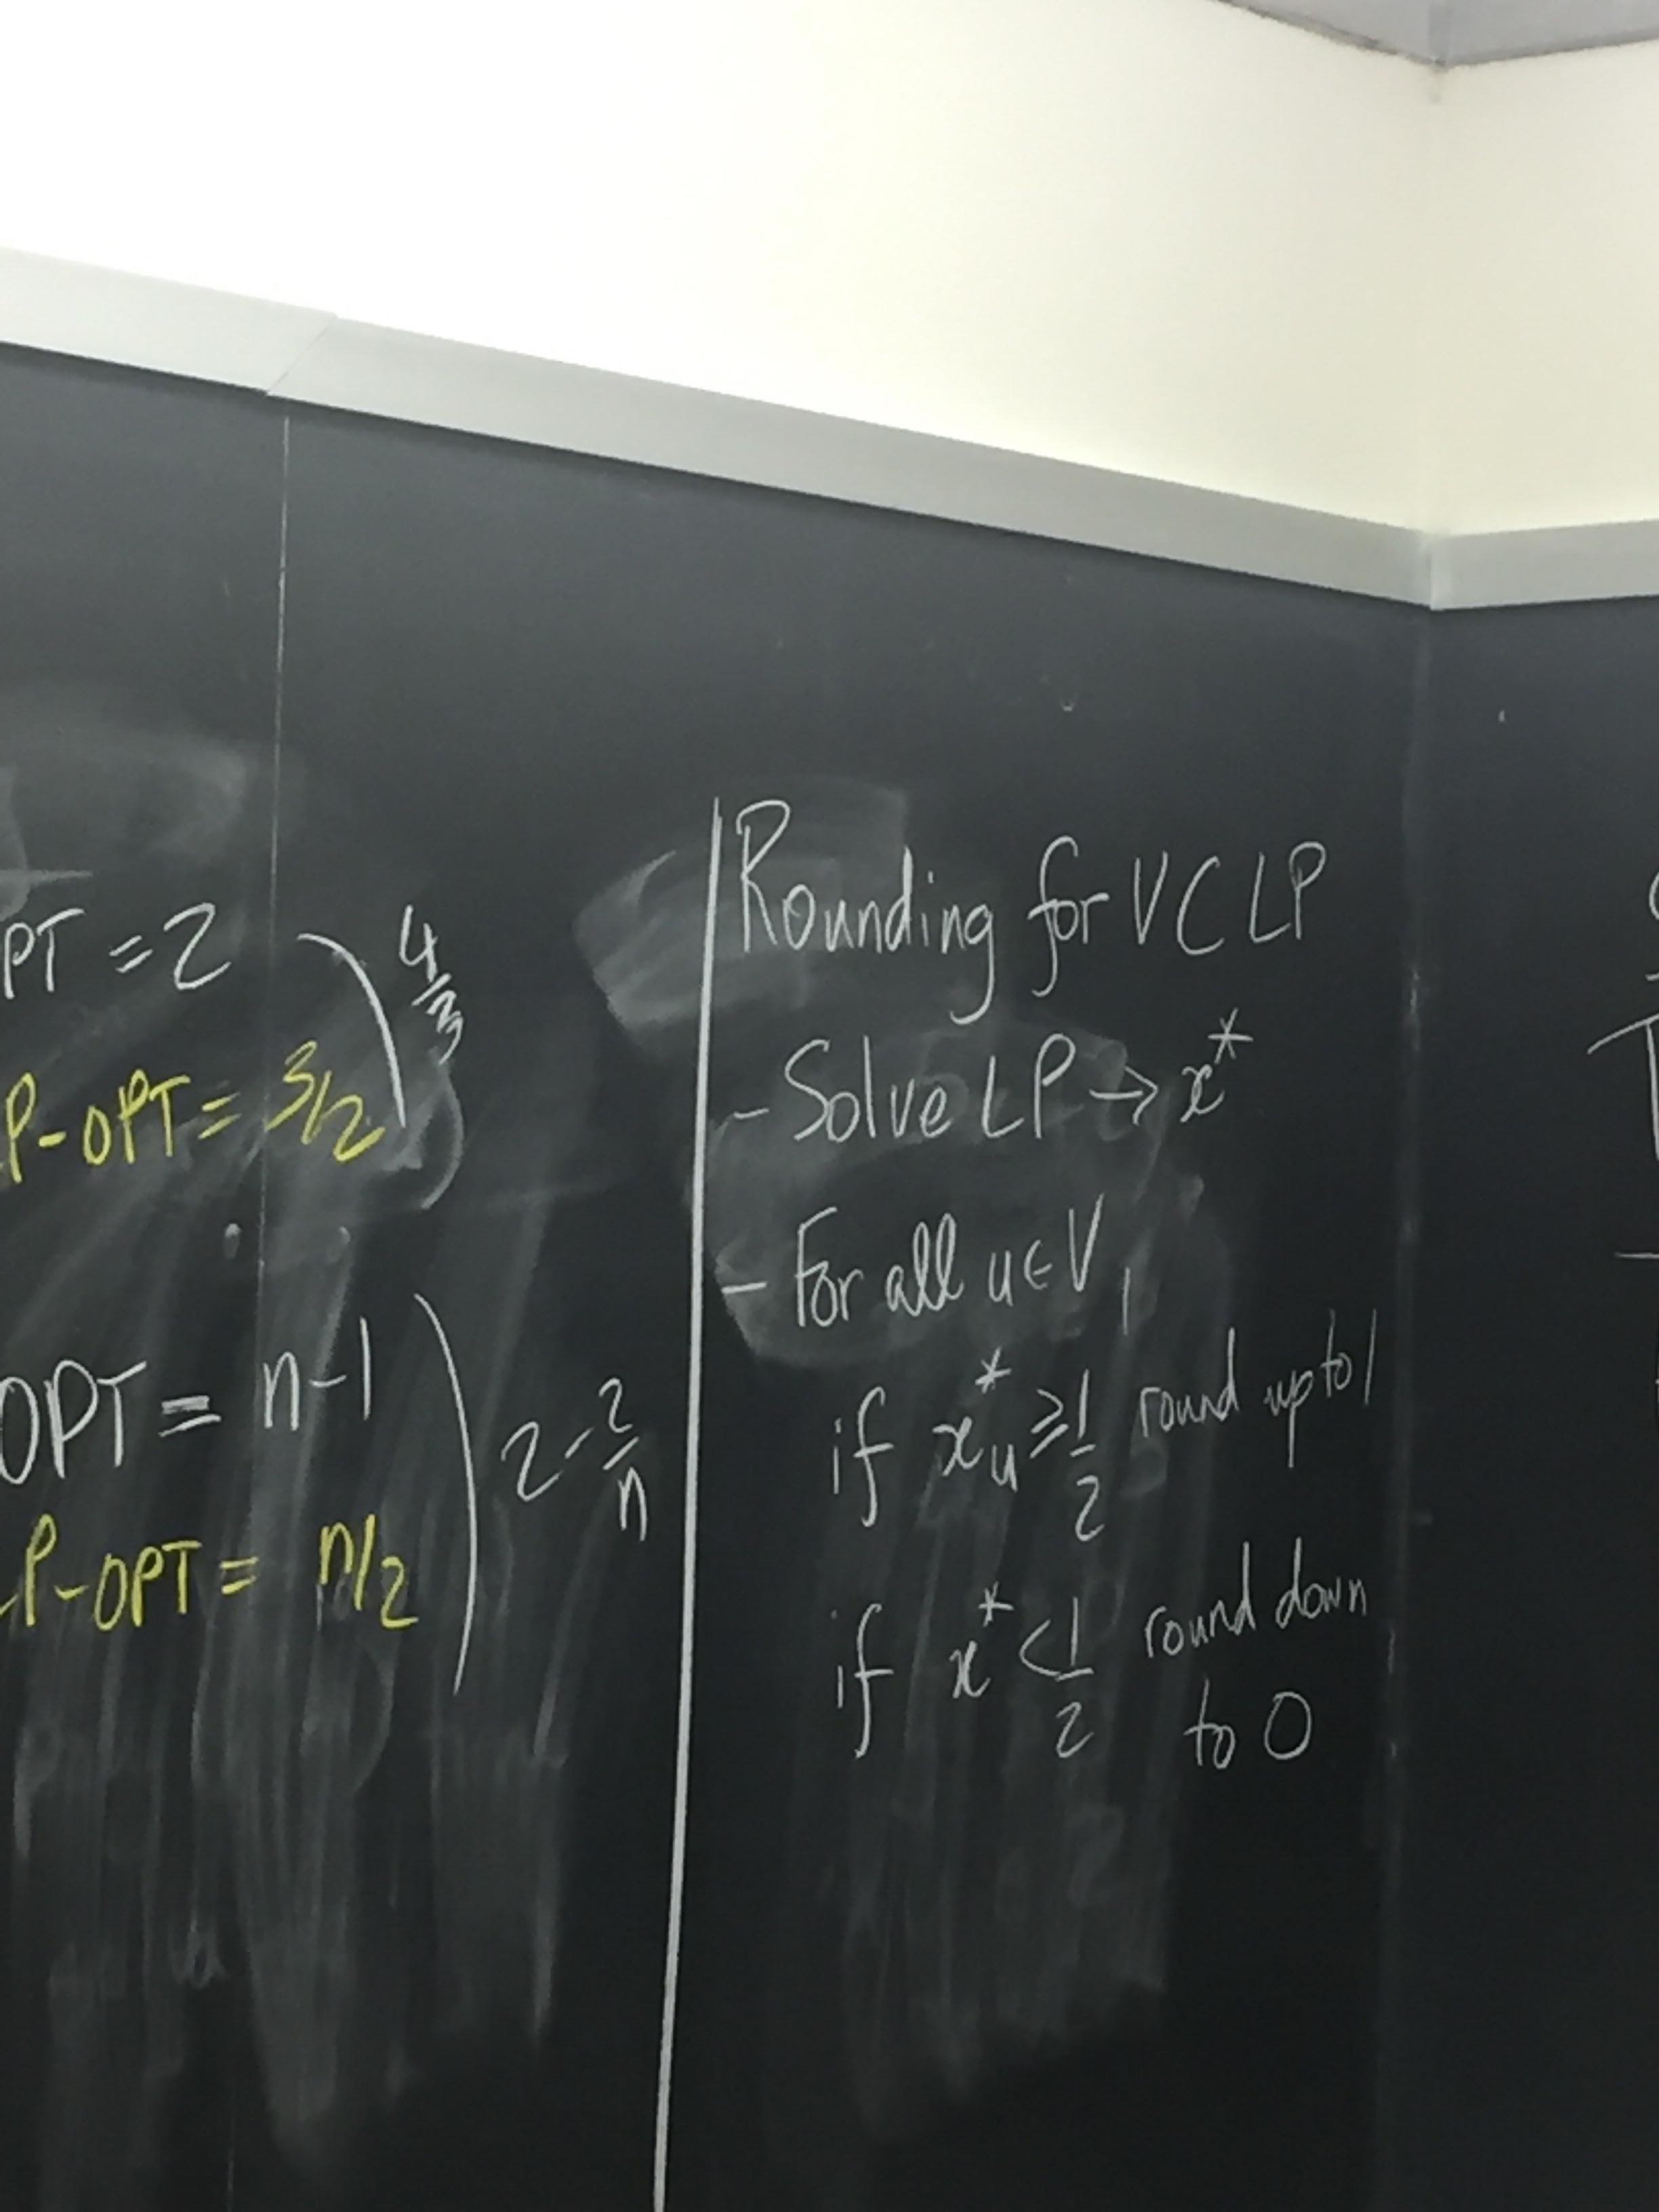 PT = 2
4/3
P-OPT = 3/2
OPT = n-1
2 - 2/n
LP-OPT = n/2
Rounding for VC LP
- Solve LP → x*
- For all u ∈ V,
if x*u ≥ 1/2 round up to 1
if x* < 1/2 round down
to 0